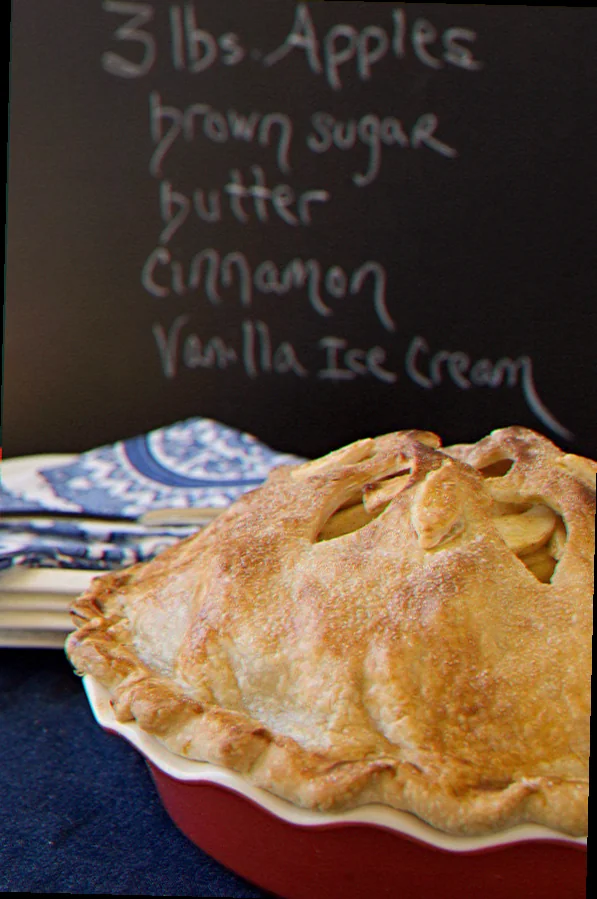 3 lbs. Apples
brown sugar
butter
cinnamon
Vanilla Ice Cream